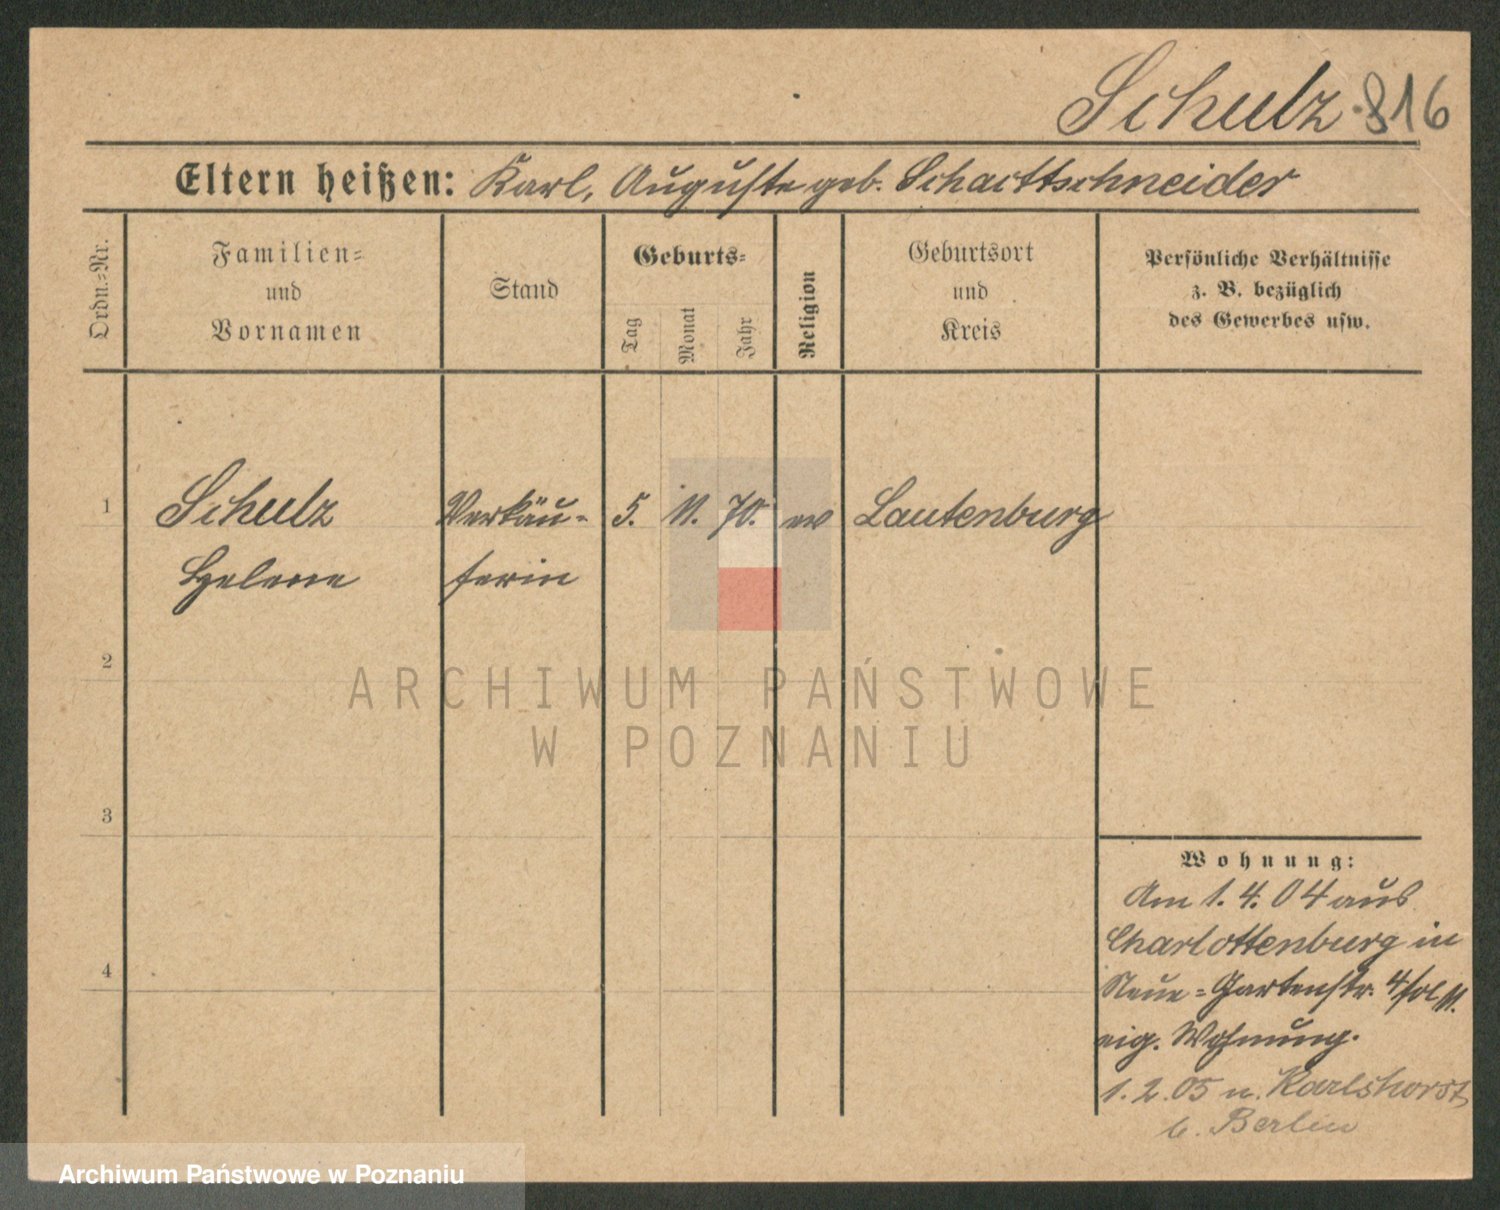 Schulz 816
Eltern heißen: Karl, Auguste geb. Schattschneider
Ordn.=Nr.
Familien=
und
Vornamen
Stand
Geburts=
Tag
Monat
Jahr
Religion
Geburtsort
und
Kreis
Persönliche Verhältnisse
z. B. bezüglich
des Gewerbes usw.
1 Schulz Verkäu= 5. 11. 70. ev Lautenburg
Helene ferin
2
3
4
Wohnung:
Am 1. 4. 04 aus
Charlottenburg in
Neue=Gartenstr. 4
eig. Wohnung.
1. 2. 05 n. Karlshorst
b. Berlin
ARCHIWUM PAŃSTWOWE
W POZNANIU
Archiwum Państwowe w Poznaniu